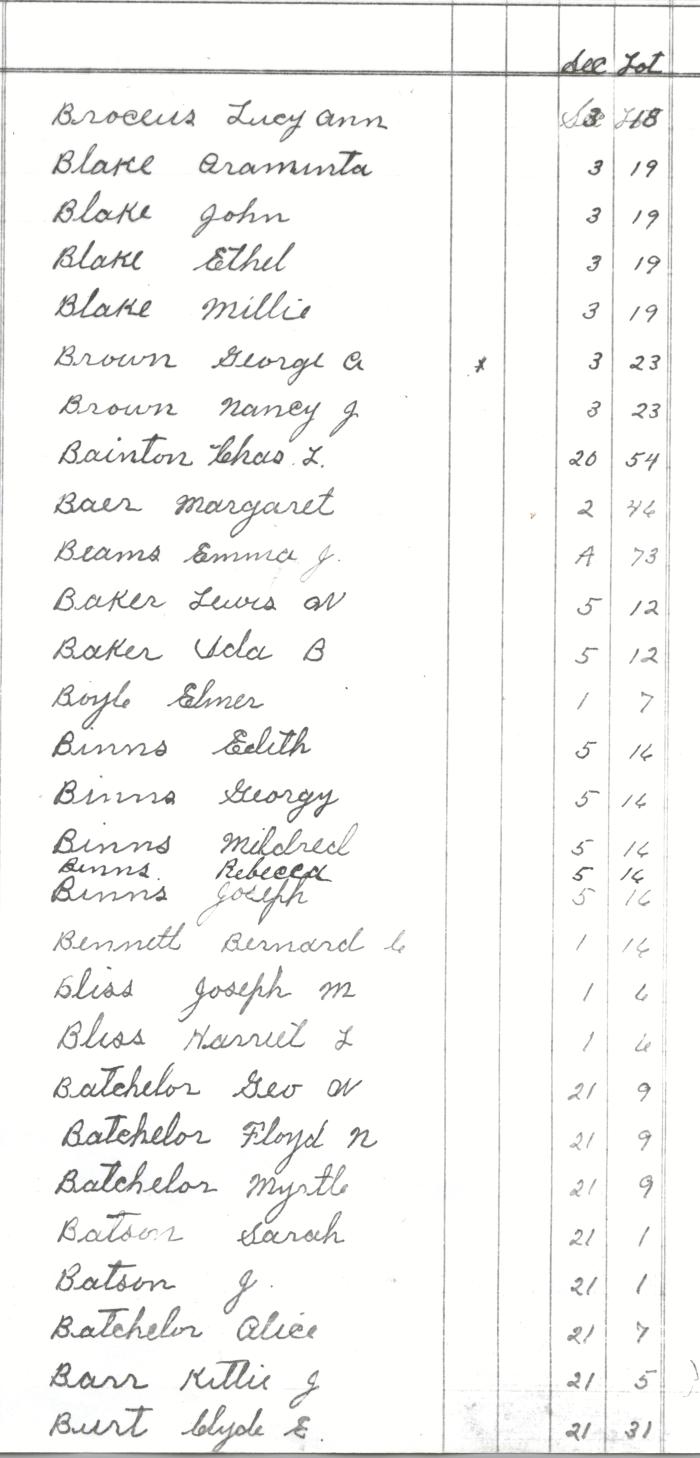 Sec Lot
Broceus Lucy Ann 3 18
Blake Araminta 3 19
Blake John 3 19
Blake Ethel 3 19
Blake Millie 3 19
Brown George A x 3 23
Brown Nancy J 3 23
Bainton Chas. L. 20 54
Baer Margaret 2 46
Beams Emma J. A 73
Baker Lewis W 5 12
Baker Ida B 5 12
Boyle Elmer 1 7
Binns Edith 5 16
Binns Georgy 5 16
Binns Mildred 5 16
Binns. Rebecca 5 16
Binns Joseph 5 16
Bennett Bernard C 1 16
Bliss Joseph M 1 6
Bliss Harriet L 1 6
Batchelor Geo W 21 9
Batchelor Floyd N 21 9
Batchelor Myrtle 21 9
Batson Sarah 21 1
Batson J. 21 1
Batchelor Alice 21 7
Barr Kittie J 21 5
Burt Clyde E. 21 31